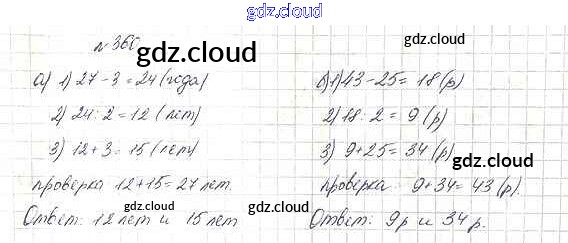 gdz.cloud
№ 360
gdz.cloud
gdz.cloud
а) 1) 27 - 3 = 24 (года)
2) 24 : 2 = 12 (лет)
3) 12 + 3 = 15 (лет)
проверка 12+15=27 лет.
Ответ: 12 лет и 15 лет
gdz.cloud
б) 1) 43 - 25 = 18 (р)
2) 18 : 2 = 9 (р)
3) 9 + 25 = 34 (р)
gdz.cloud
проверка: 9+34=43 (р).
gdz.cloud
Ответ: 9р и 34 р.
gdz.cloud
gdz.cloud